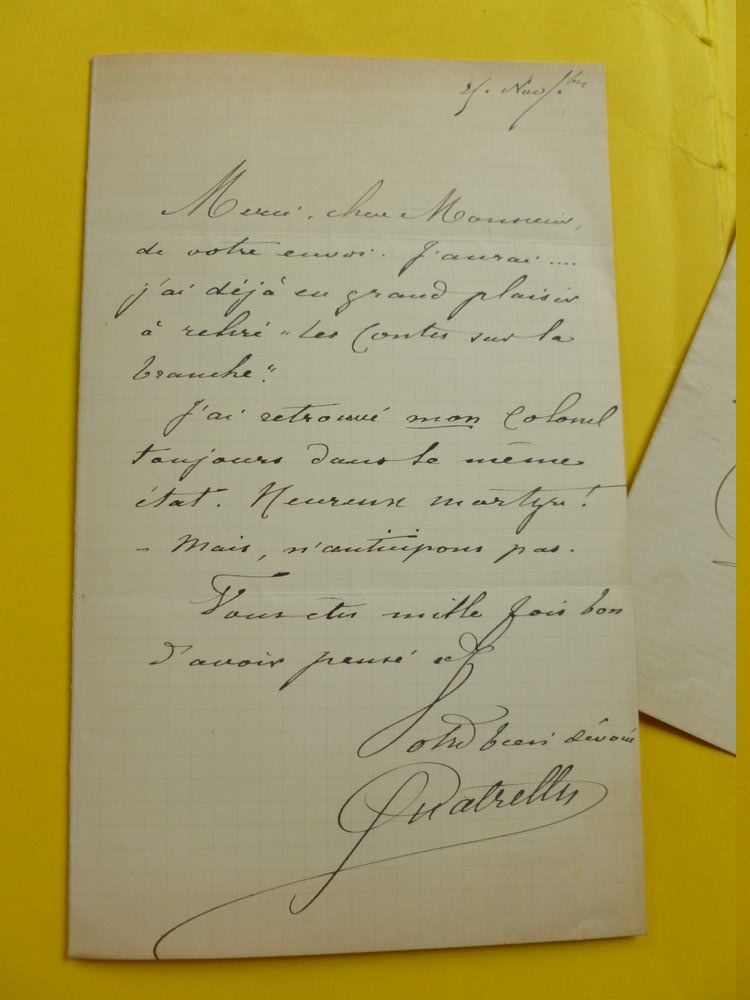 Nov.bre
Merci, cher Monsieur,
de votre envoi. J'aurai ....
j'ai déjà eu grand plaisir
à reliré "Les Contes sur la
branche".
J'ai retrouvé mon Colonel
toujours dans le même
état. Heureux martyr!
- Mais, n'anticipons pas.
Vous êtes mille fois bon
d'avoir pensé à
Votre bien dévoué
Quatrelles